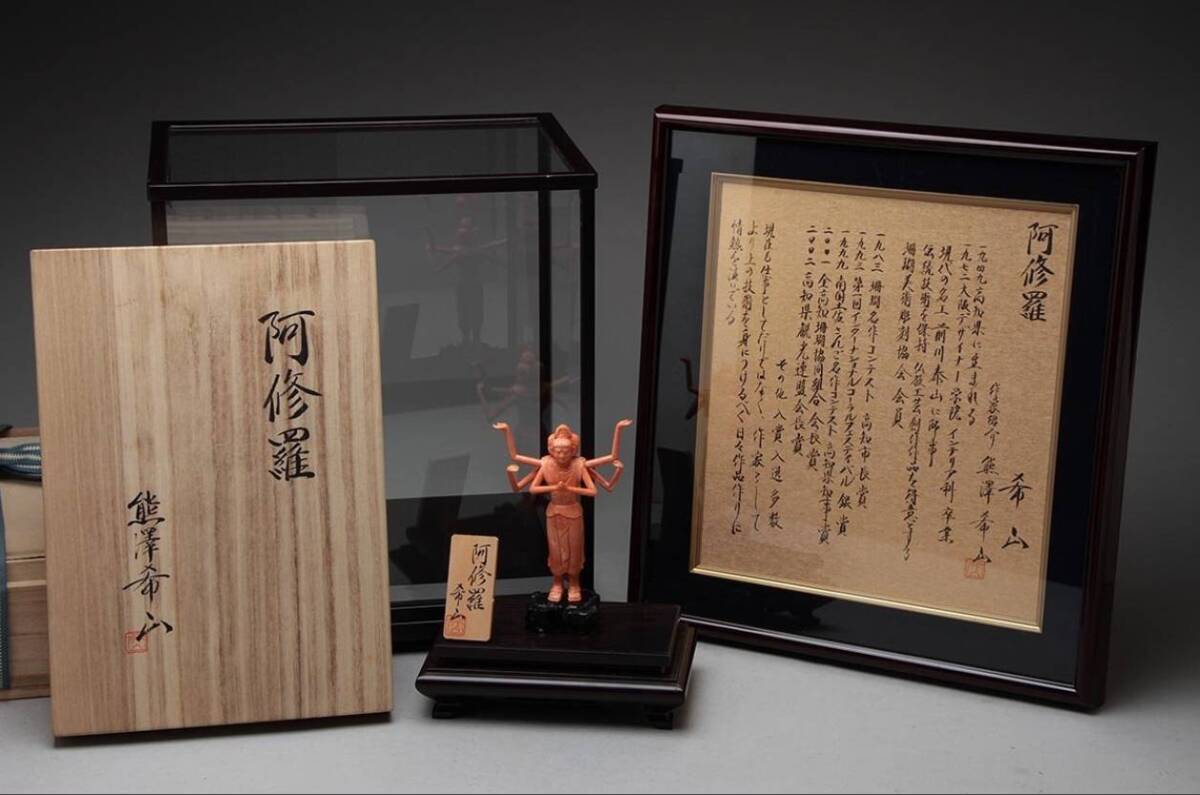 阿修羅
熊澤希山
阿修羅
希山
阿修羅
希山
作家紹介 熊澤希山
一九四九 高知県に生まれる
一九七二 大阪デザイナー学院 インテリア科卒業
現代の名工 前川泰山に師事
伝統技術を保持 仏教工芸創作作品を得意とする
珊瑚美術彫刻協会会員
一九八三 珊瑚名作コンテスト 高知市長賞
一九九三 第一回インターナショナルコーラルフェスティバル 銀賞
一九九九 南国土佐さんご名作コンテスト 高知県知事賞
二〇〇一 全高知珊瑚協同組合会長賞
二〇〇二 高知県観光連盟会長賞
その他 入賞入選多数
現在も仕事としてだけではなく、作家として
より上の技術を身につけるべく日々作品作りに
情熱を注いでいる